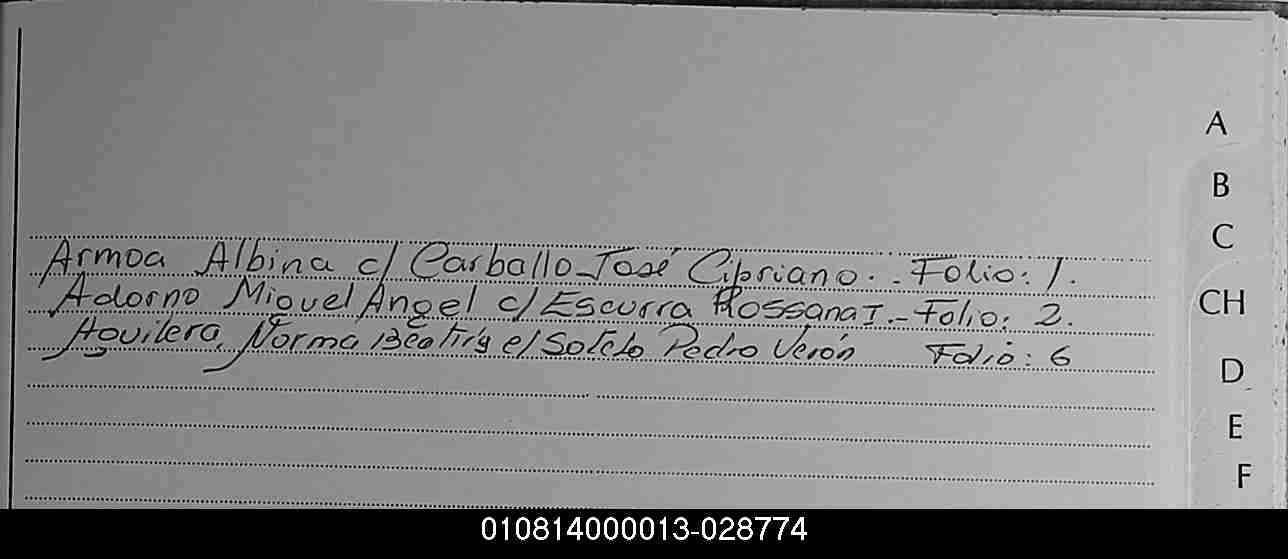 Armoa Albina c/ Carballo José Cipriano. - Folio: 1.
Adorno Miguel Angel c/ Escurra Rossana I. - Folio: 2.
Aguilera, Norma Beatriz c/ Sotelo Pedro Verón Folio: 6
A
B
C
CH
D
E
F
010814000013-028774